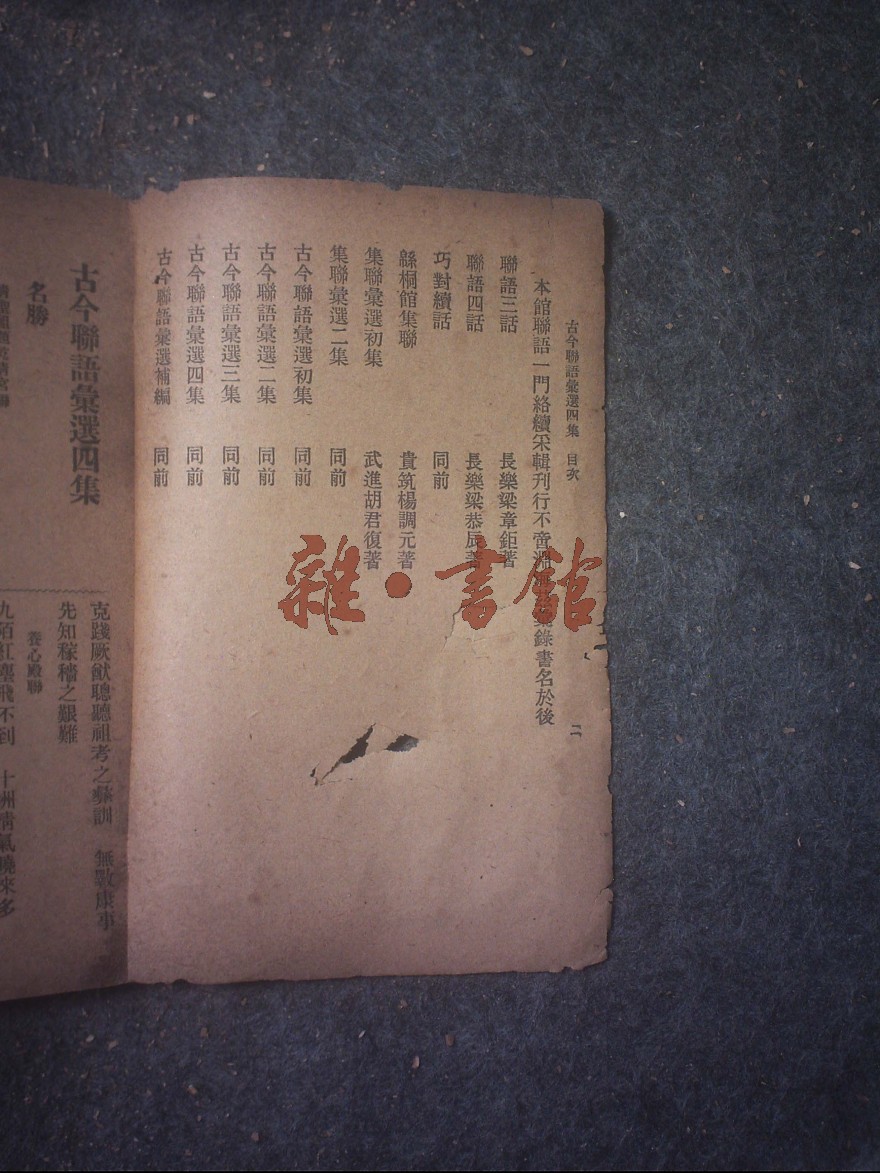 古今聯語彙選四集　目次
二
本館聯語一門絡續采輯刊行不啻淵 錄書名於後
聯語三話　長樂梁章鉅著
聯語四話　長樂梁恭辰著
巧對續話　同前
緜桐館集聯　貴筑楊調元著
集聯彙選初集　武進胡君復著
集聯彙選二集　同前
古今聯語彙選初集　同前
古今聯語彙選二集　同前
古今聯語彙選三集　同前
古今聯語彙選四集　同前
古今聯語彙選補編　同前
雜·書館
古今聯語彙選四集
名勝
克踐厥猷聰聽祖考之彝訓　無斁康事
先知稼穡之艱難
養心殿聯
九陌紅塵飛不到　十洲淸氣曉來多